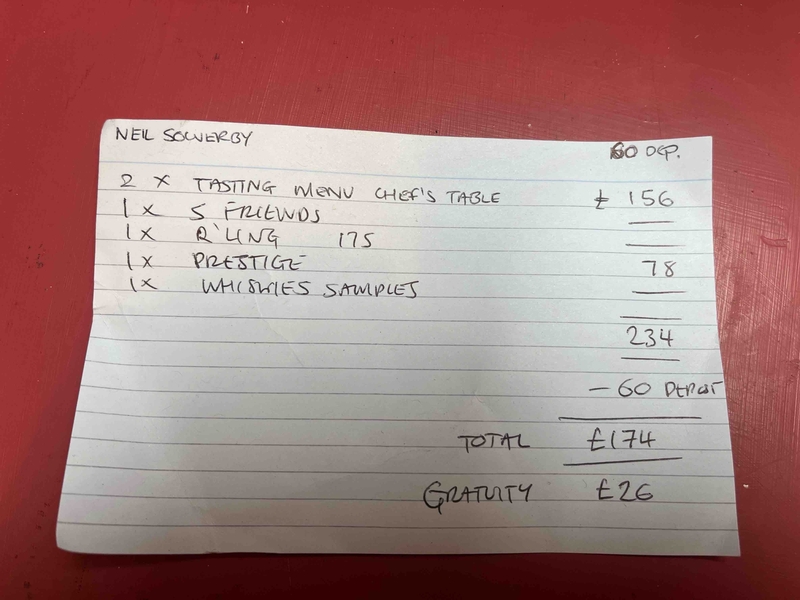 NEIL SOWERBY 60 DEP.
2 x TASTING MENU CHEF'S TABLE £ 156
1 x 5 FRIENDS
1 x R'LING 175
1 x PRESTIGE 78
1 x WHISKIES SAMPLES
234
- 60 DEPOSIT
TOTAL £174
GRATUITY £26